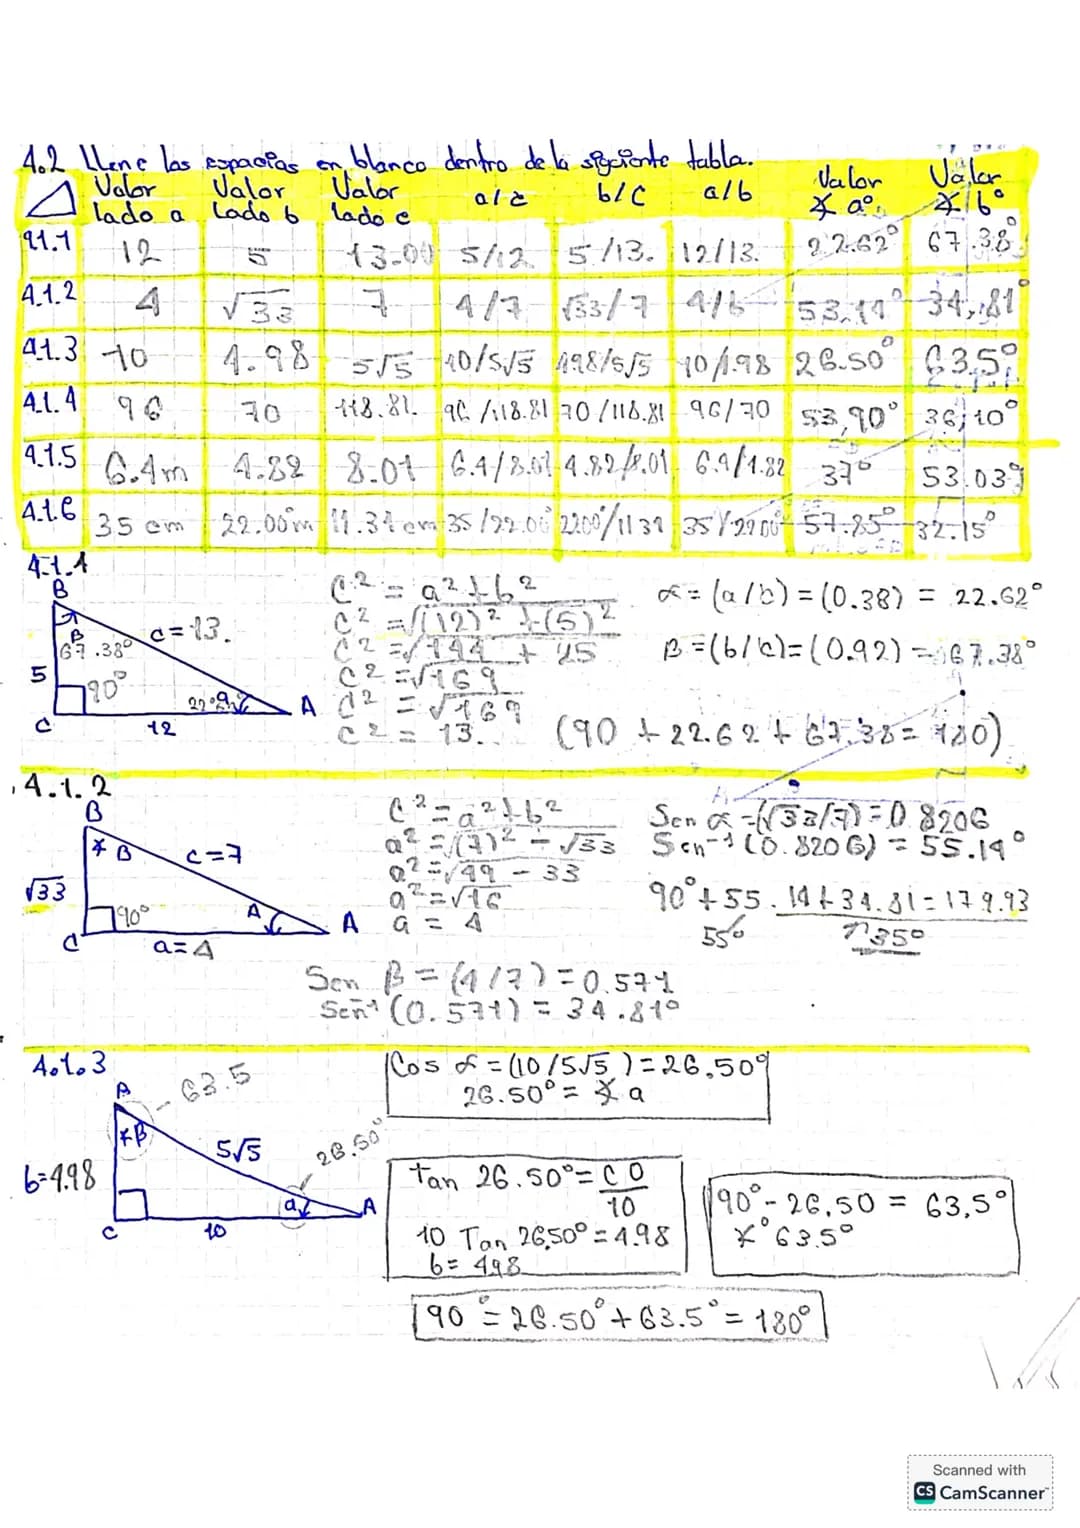 4.2 Llene los espacios en blanco dentro de la siguiente tabla.
Valor lado a Valor Lado b Valor lado c a/c b/c a/b Valor ∡ a° Valor ∡ b°
4.1.1 12 5 13.00 5/12 5/13. 12/13. 22.62° 67.38°
4.1.2 4 √33 7 4/7 √33/7 4/b 34,81°
4.1.3 10 4.98 5√5 10/5√5 4.98/5√5 10/4.98 26.50° 63,5°
4.1.4 96 70 118.81. 96/118.81 70/118.81 96/70 53,90° 36,10°
4.1.5 6.4m 4.82 8.01 6.4/8.01 4.82/8.01 6.4/4.82 37° 53.03°
4.1.6 35 cm 22.00m 11.31cm 35/22.00 2200/1131 35/2200 57.85° 32.15°
4.1.1
B
c² = a²+b²
α = (a/c) = (0.38) = 22.62°
c² = √(12)² + (5)²
B
67.38°
c=13.
c² = √144 + 25
β = (b/c) = (0.92) = 67.38°
5
90°
c² = √169
A
c² = √169
C
12
c² = 13.
(90 + 22.62 + 67.38 = 180)
4.1.2
B
c² = a²+b²
Sen α = (√33/7) = 0.8206
∡ B
c=7
a² = √(7)² - √33
Sen⁻¹ (0.8206) = 55.19°
a² = √49 - 33
√33
a² = √16
90° + 55.19 + 34.81 = 179.93
90°
A
A
a = 4
55°
35°
C
a=4
Sen β = (4/7) = 0.571
Sen⁻¹ (0.571) = 34.81°
4.1.3
63.5
Cos α = (10/5√5) = 26,50°
26.50° = ∡ a
∡B
5√5
26.50°
b=4.98
Tan 26.50° = CO
10
90° - 26,50 = 63,5°
a
A
C
10
10 Tan 26,50° = 4.98
∡° 63.5°
b= 4.98
90° = 26.50° + 63.5° = 180°
Scanned with
CS CamScanner